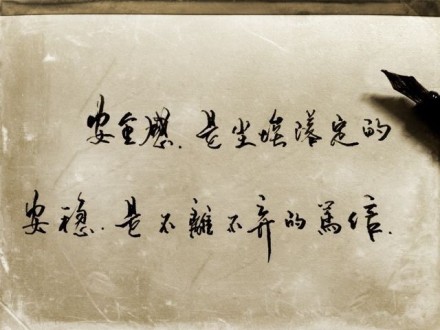 安全感.是尘埃落定的
安穩.是不離不弃的篤信.